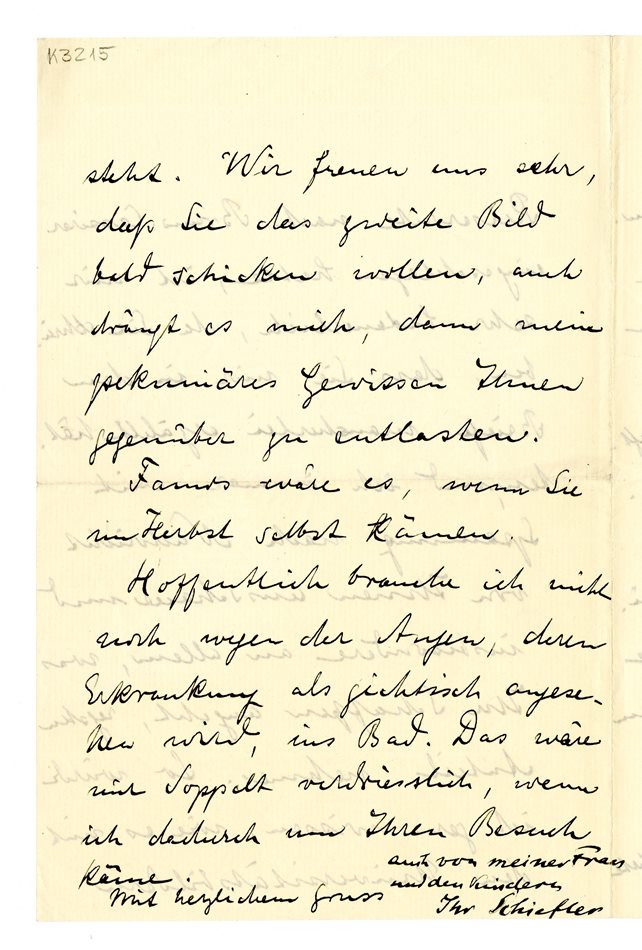 K3215
steht. Wir freuen uns sehr,
daß Sie das zweite Bild
bald schicken wollen, auch
drängt es mich, dann mein
pekuniäres Gewissen Ihnen
gegenüber zu entlasten.
Famos wäre es, wenn Sie
im Herbst selbst kämen.
Hoffentlich brauche ich nicht
noch wegen der Augen, deren
Erkrankung als gichtisch angese-
hen wird, ins Bad. Das wäre
mir doppelt verdriesslich, wenn
ich dadurch um Ihren Besuch
käme.
Mit herzlichem Gruss
auch von meiner Frau
und den Kindern
Ihr Schiefler